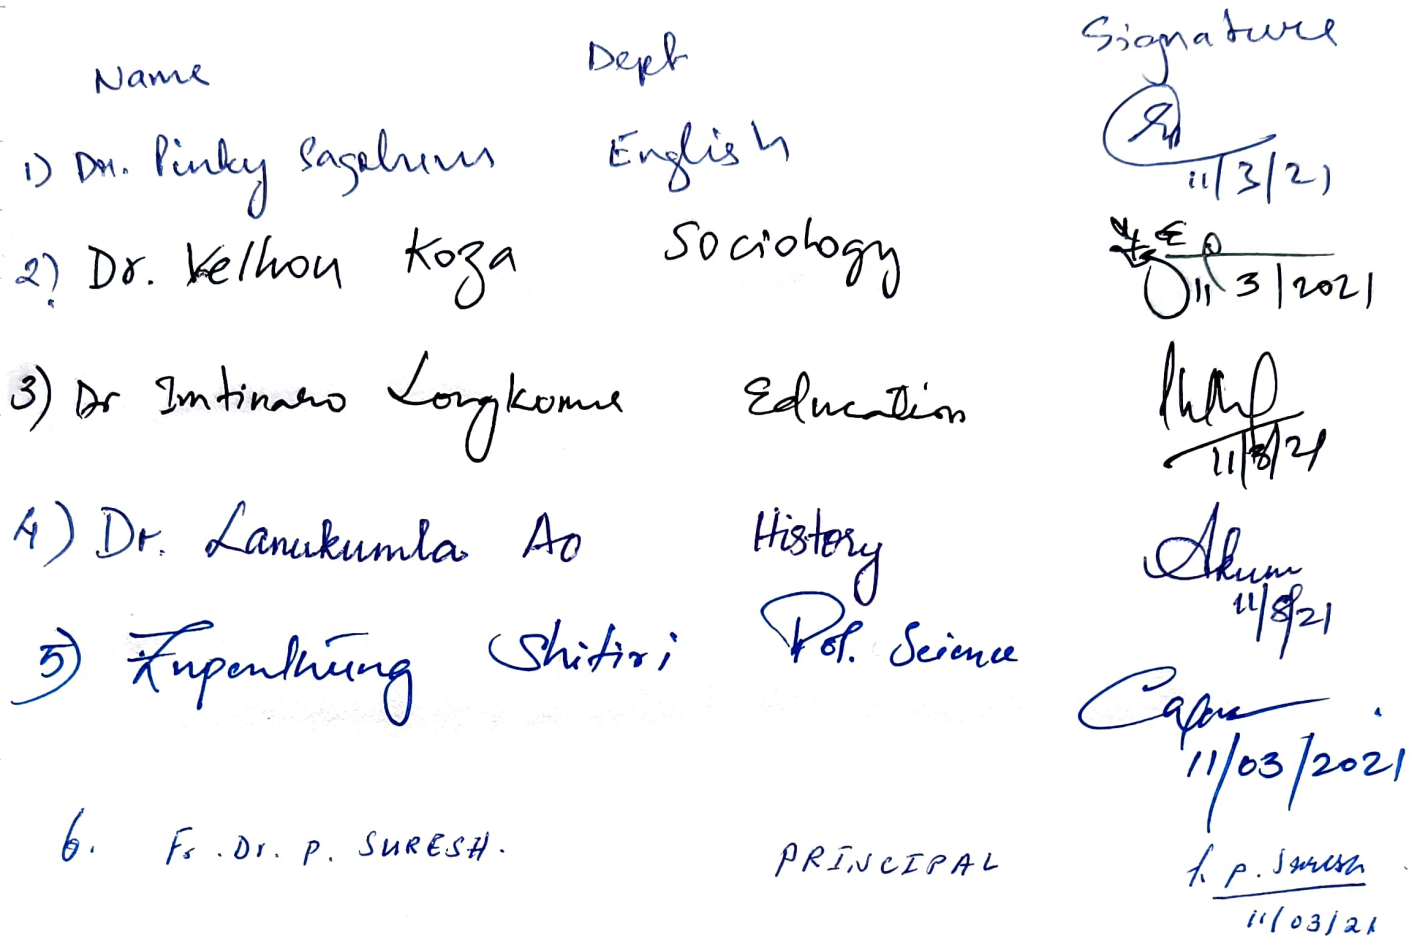 Name Dept Signature
1) Dr. Pinky Sagolsem English
11/3/21
2) Dr. Velhou Koza Sociology
11/3/2021
3) Dr Imtinaro Longkumer Education
11/3/21
4) Dr. Lanukumla Ao History
Akum
11/3/21
5) Zupenthung Shitiri Pol. Science
11/03/2021
6. Fr. Dr. P. SURESH. PRINCIPAL
P. Suresh
11/03/21